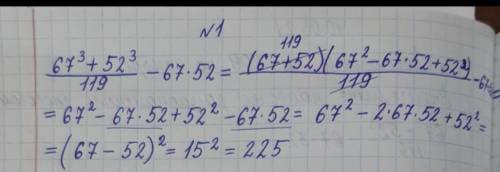 №1
(67³ + 52³)/119 − 67·52 = (67+52)(67² − 67·52 + 52²)/119 − 67·
= 67² − 67·52 + 52² − 67·52 = 67² − 2·67·52 + 52² =
= (67 − 52)² = 15² = 225